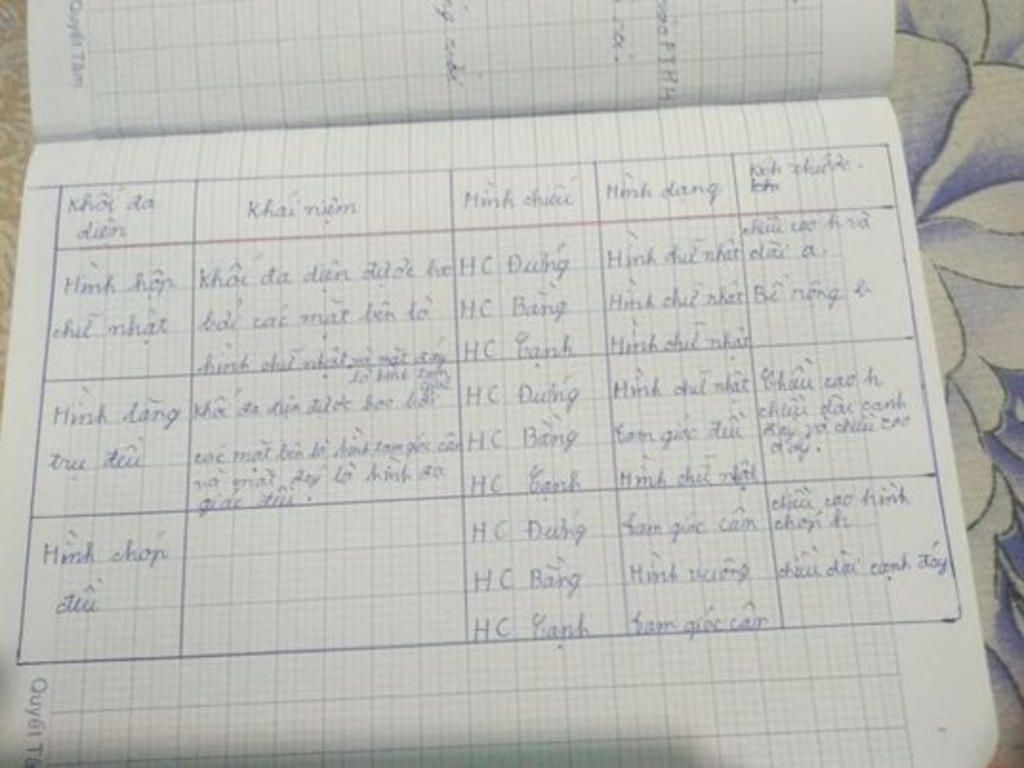 Quyết Tâm
Khối đa diện
Khái niệm
Hình chiếu
Hình dạng
Kích thước
Hình hộp chữ nhật
Khối đa diện được bao
bởi các mặt bên là
hình chữ nhật và mặt đáy
là hình tam giác
HC Đứng
HC Bằng
HC Cạnh
Hình chữ nhật
Hình chữ nhật
Hình chữ nhật
chiều cao h và
dài a.
Bề rộng b
Hình lăng
trụ đều
Khối đa diện được bao bởi
các mặt bên là hình tam giác cân
và mặt đáy là hình đa
giác đều.
HC Đứng
HC Bằng
HC Cạnh
Hình chữ nhật
Tam giác đều
Hình chữ nhật
Chiều cao h
chiều dài cạnh
đáy và chiều cao
đáy.
Hình chóp
đều
HC Đứng
HC Bằng
HC Cạnh
Tam giác cân
Hình vuông
Tam giác cân
chiều cao hình
chóp h
chiều dài cạnh đáy
Quyết Tâ